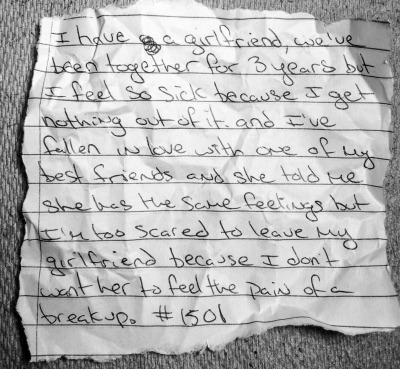 I have a girlfriend, we've
been together for 3 years but
I feel so sick because I get
nothing out of it. and I've
fallen in love with one of my
best friends and she told me
she has the same feelings but
I'm too scared to leave my
girlfriend because I don't
want her to feel the pain of a
breakup. #1501